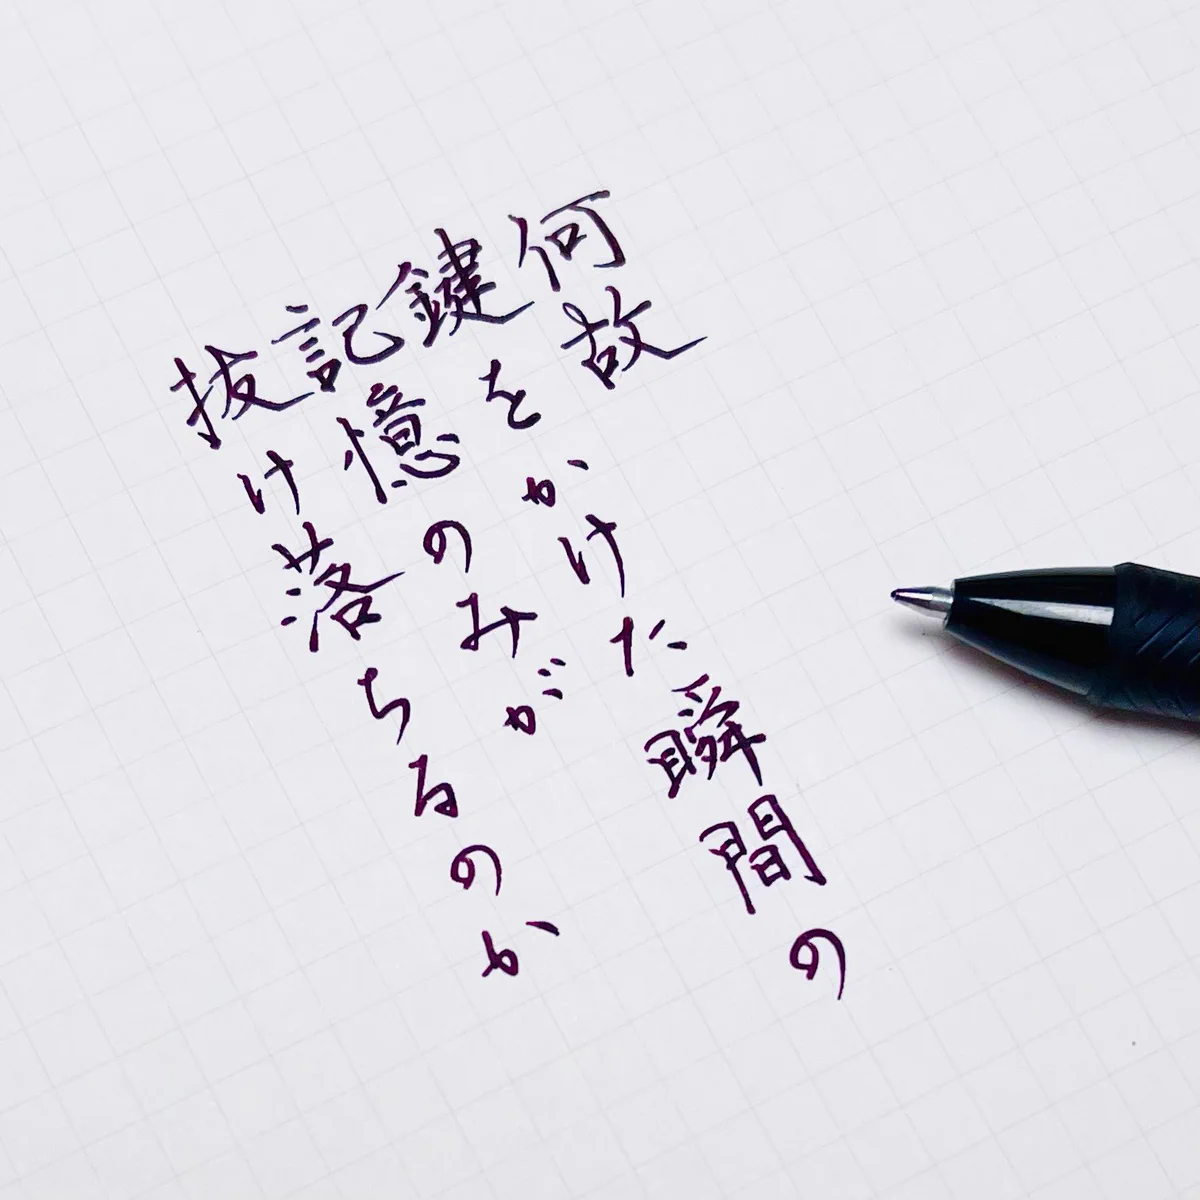 何故
鍵をかけた瞬間の
記憶のみが
抜け落ちるのか